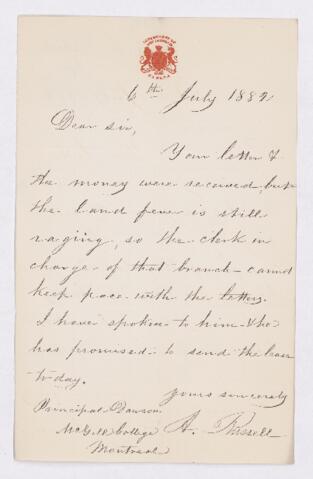 6th July 1882
Dear sir,
Your letter &
the money were received, but
the land fever is still
raging, so the clerk in
charge of that branch cannot
keep pace with the letters.
I have spoken to him & he
has promised to send the
to day.
yours sincerely
A. Russell
Principal Dawson
McGill College
Montreal